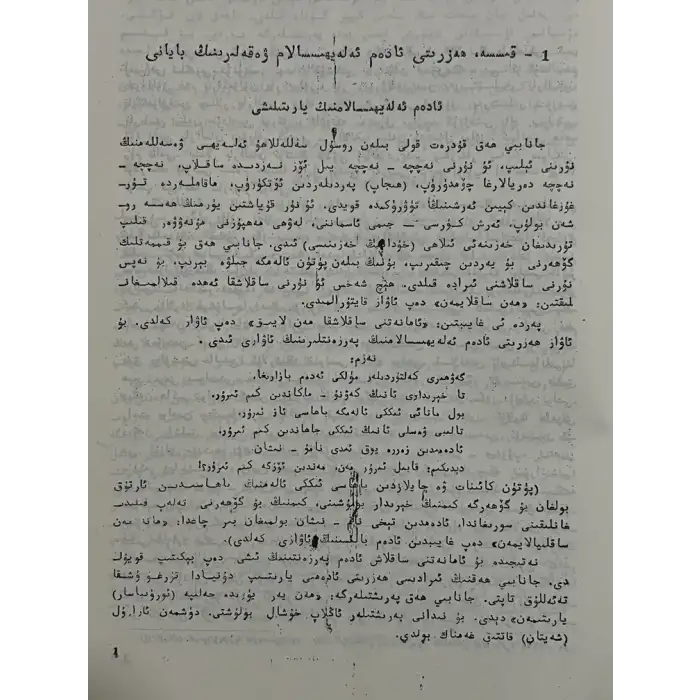 1 - قىسسە، ھەزرىتى ئادەم ئەلەيھىسسالام ۋەقەلەرىنىڭ بايانى
ئادەم ئەلەيھىسسالامنىڭ يارىتىلىشى
جانابىي ھەق قۇدرەت قولى بىلەن رەسۇل سەللەللاھۇ ئەلەيھى ۋەسەللەمنىڭ
نۇرىنى ئېلىپ، ئۇ نۇرنى نەچچە - نەچچە يىل ئۆز نەزدىدە ساقلاپ، نەچچە -
نەچچە دەريالارغا چۆمدۈرۈپ، (ھىجاپ) پەردىلەردىن ئۆتكۈزۈپ، ماقاملەردە تۇر-
غۇزغاندىن كېيىن ئەرشنىڭ تۈۋرۈكىدە قويدى. ئۇ نۇر قۇياشتىن يۈزمىڭ ھەسسە رو-
شەن بولۇپ، ئەرش كۇرسى — جىمى ئاسماننى، لەۋھى مەھپۇزنى مۇنەۋۋەر قىلىپ
تۇرىدىغان خەزىنەئى ئىلاھى (خۇدانىڭ خەزىنىسى) ئىدى. جانابىي ھەق بۇ قىممەتلىك
گۆھەرنى بۇ يەردىن چىقىرىپ، بۇنىڭ بىلەن پۈتۈن ئالەمگە جىلۋە بېرىپ، بۇ نەپىس
نۇرنى ساقلاشنى ئىرادە قىلدى. ھېچ شەخس ئۇ نۇرنى ساقلاشقا ئەھدە قىلالمىغان-
لىقتىن: «مەن ساقلايمەن» دەپ ئاۋاز قايتۇرالمىدى.
پەردە ئى غايىبتىن: «ئامانەتنى ساقلاشقا مەن لايىق» دەپ ئاۋاز كەلدى. بۇ
ئاۋاز ھەزرىتى ئادەم ئەلەيھىسسالامنىڭ پەرزەنتلىرىنىڭ ئاۋازى ئىدى.
نەزم:
گەۋھىرى كەلتۈردىلەر مۇلكى ئەدەم بازارىغا،
تا خېرىدارى ئانىڭ كەۋنۇ - ماكاندىن كىم ئىرۇر.
بول ماتائى ئىككى ئالەمگە باھاسى ئاز ئىرۇر،
تالىبى ۋەسلى ئانىڭ ئىككى جاھاندىن كىم ئىرۇر.
ئادەمدىن زەررە يوق ئىدى نامۇ - نىشان
دېدىكىم: قابىل ئىرۇر مەن، مەندىن ئۆزگە كىم ئىرۇر؟!
(پۈتۈن كائىنات ۋە جايلاردىن باھاسى ئىككى ئالەمنىڭ باھاسىدىن ئارتۇق
بولغان بۇ گۆھەرگە كىمنىڭ خېرىدار بولۇشىنى، كىمنىڭ بۇ گۆھەرنى تەلەپ قىلىد-
غانلىقىنى سورىغاندا، ئادەمدىن تېخى نام - نىشان بولمىغان بىر چاغدا: «مانا مەن
ساقلىيالايمەن» دەپ غايىبدىن ئادەم بالىسىنىڭ ئاۋازى كەلدى).
نەتىجىدە بۇ ئامانەتنى ساقلاش ئادەم پەرزەنتىنىڭ ئىشى دەپ بېكىتىپ قويۇل-
دى. جانابىي ھەقنىڭ ئىرادىسى ھەزرىتى ئادەمنى يارىتىپ دۇنيادا تۇرغۇزۇشقا
تەئەللۇق تاپتى. جانابىي ھەق پەرىشتىلەرگە: «مەن يەر يۈزىدە خەلىپە (ئورۇنباسار)
يارىتىمەن» دېدى. بۇ نىدانى پەرىشتىلەر ئاڭلاپ خۇشال بولۇشتى. دۈشمەن ئازازۇل
(شەيتان) قاتتىق غەمناك بولدى.
1